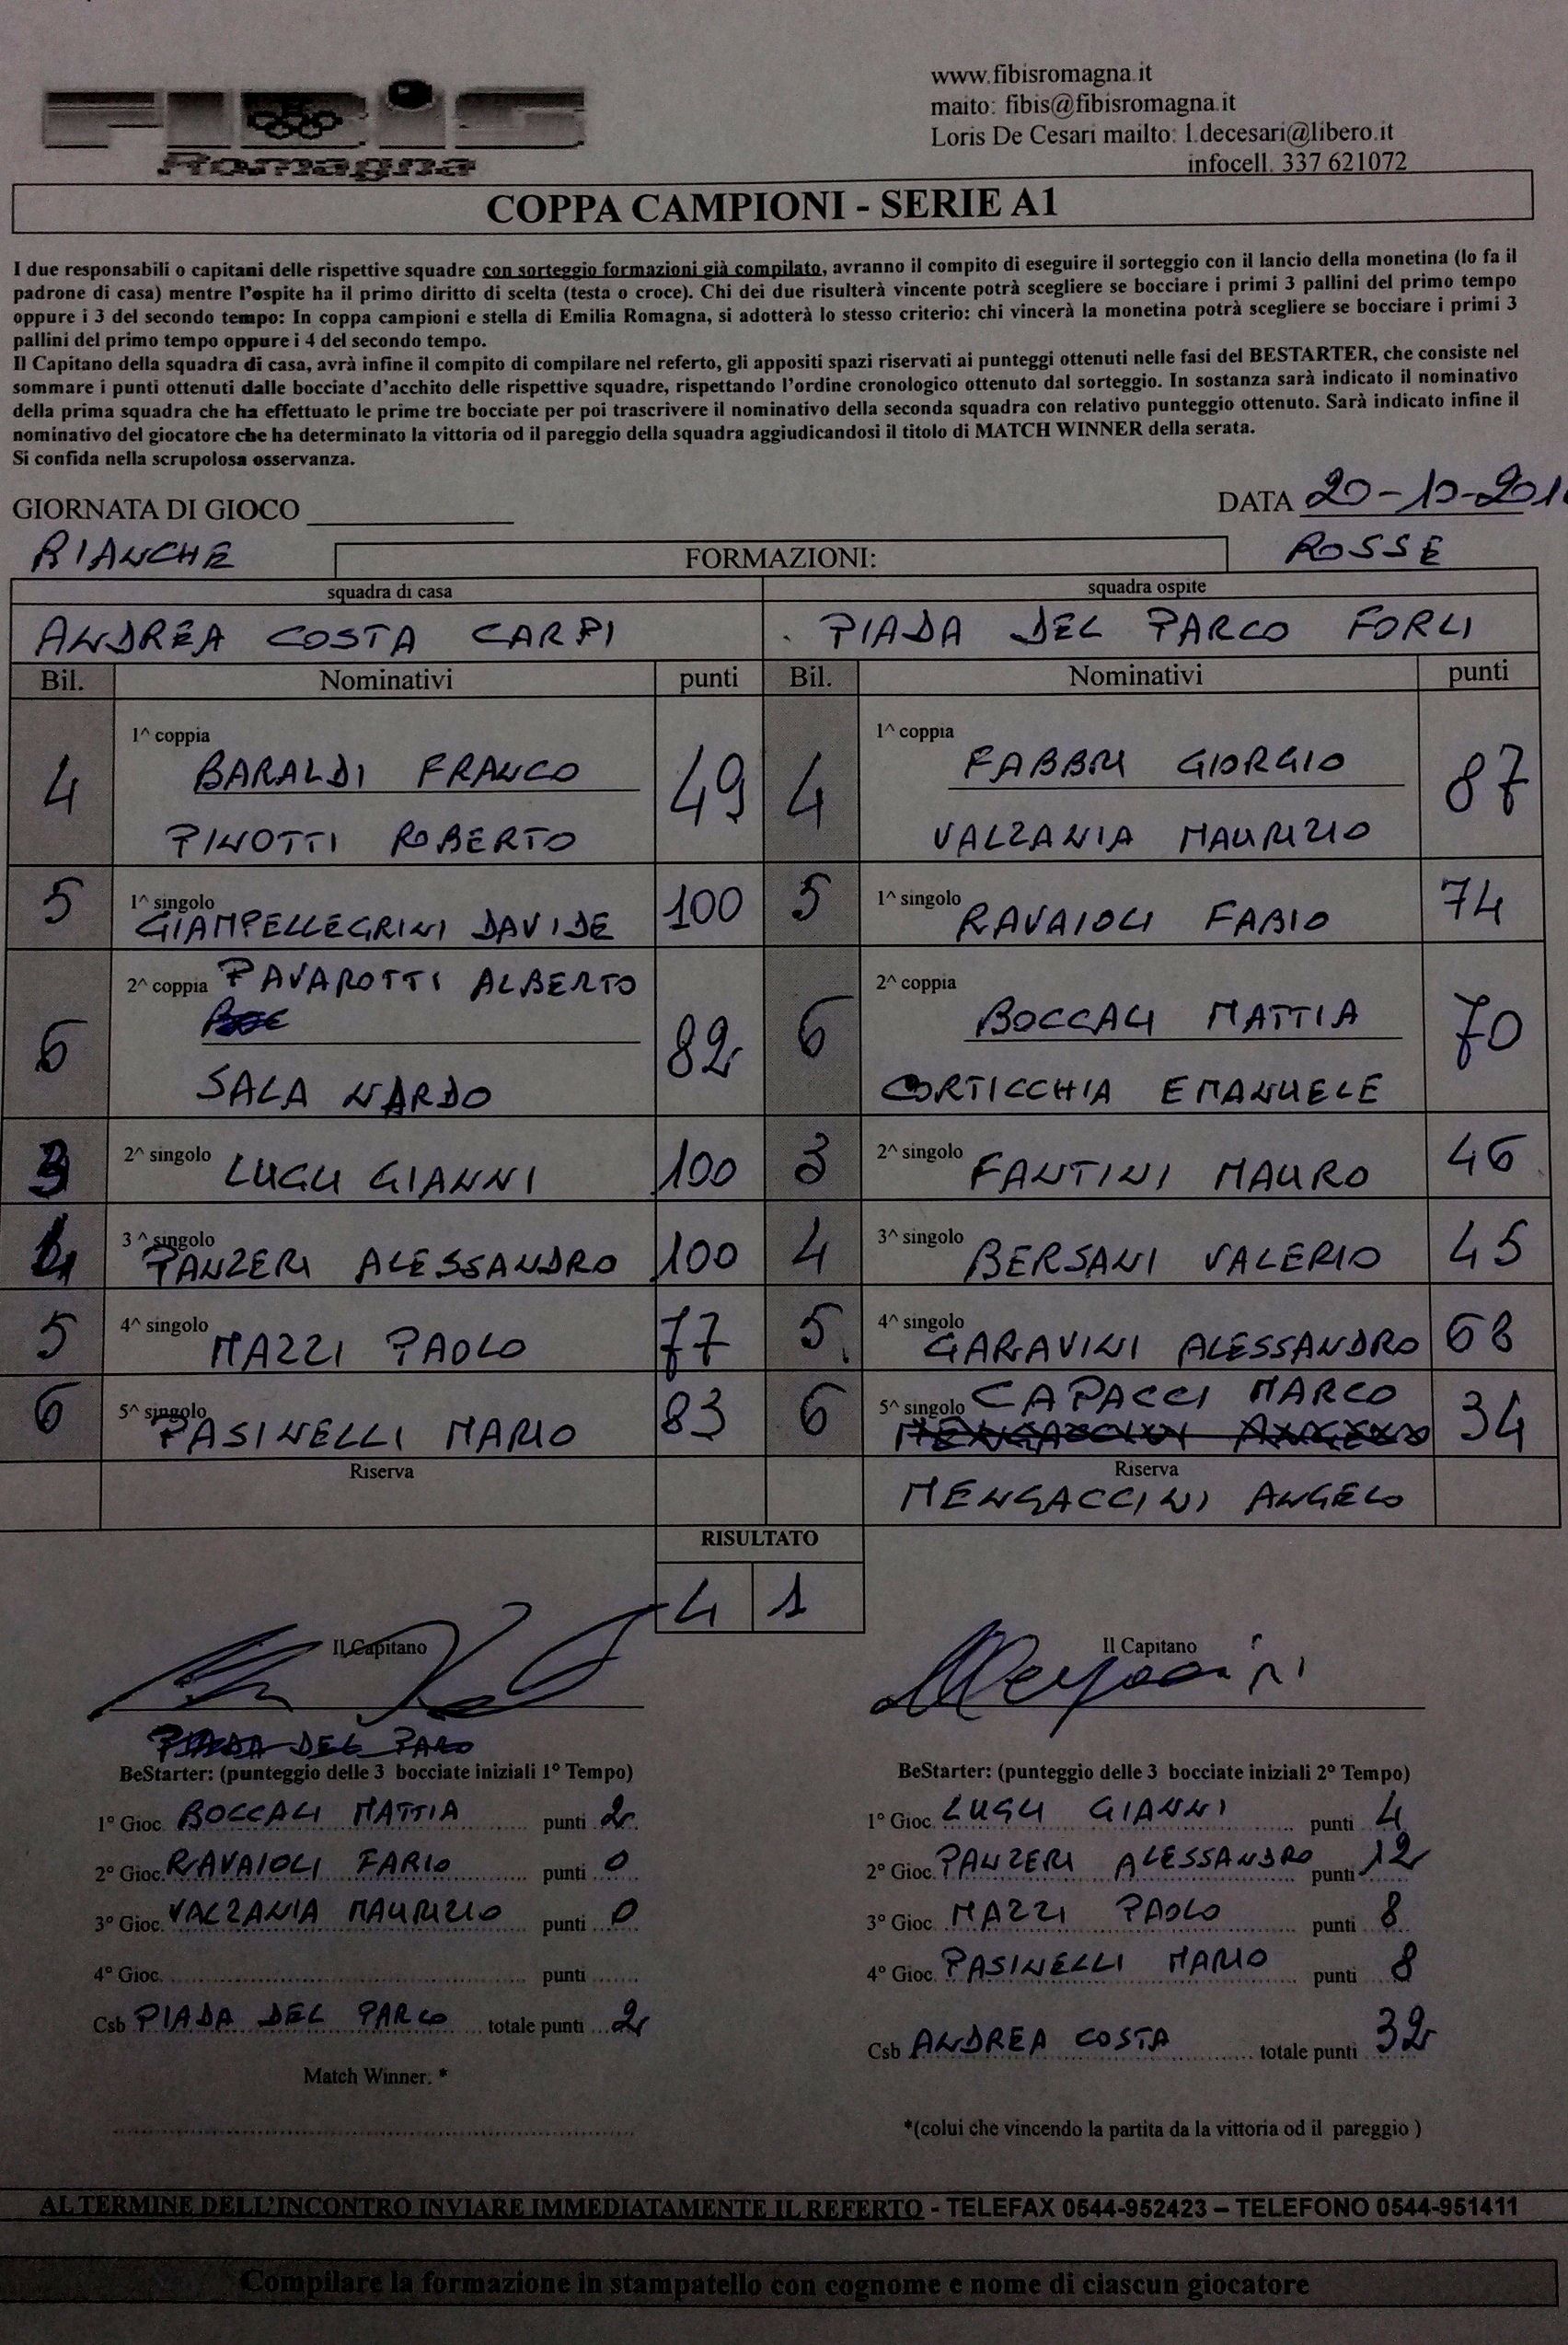 Romagna
www.fibisromagna.it
maito: fibis@fibisromagna.it
Loris De Cesari mailto: l.decesari@libero.it
infocell. 337 621072
COPPA CAMPIONI - SERIE A1
I due responsabili o capitani delle rispettive squadre con sorteggio formazioni già compilato, avranno il compito di eseguire il sorteggio con il lancio della monetina (lo fa il
padrone di casa) mentre l'ospite ha il primo diritto di scelta (testa o croce). Chi dei due risulterà vincente potrà scegliere se bocciare i primi 3 pallini del primo tempo
oppure i 3 del secondo tempo: In coppa campioni e stella di Emilia Romagna, si adotterà lo stesso criterio: chi vincerà la monetina potrà scegliere se bocciare i primi 3
pallini del primo tempo oppure i 4 del secondo tempo.
Il Capitano della squadra di casa, avrà infine il compito di compilare nel referto, gli appositi spazi riservati ai punteggi ottenuti nelle fasi del BESTARTER, che consiste nel
sommare i punti ottenuti dalle bocciate d'acchito delle rispettive squadre, rispettando l'ordine cronologico ottenuto dal sorteggio. In sostanza sarà indicato il nominativo
della prima squadra che ha effettuato le prime tre bocciate per poi trascrivere il nominativo della seconda squadra con relativo punteggio ottenuto. Sarà indicato infine il
nominativo del giocatore che ha determinato la vittoria od il pareggio della squadra aggiudicandosi il titolo di MATCH WINNER della serata.
Si confida nella scrupolosa osservanza.
GIORNATA DI GIOCO DATA 20-10-201
BIANCHE FORMAZIONI: ROSSE
squadra di casa squadra ospite
ANDREA COSTA CARPI PIADA DEL PARCO FORLI
Bil. Nominativi punti Bil. Nominativi punti
1^ coppia 1^ coppia
BARALDI FRANCO FABBRI GIORGIO
4 49 4 87
PINOTTI ROBERTO VALZANIA MAURIZIO
5 1^ singolo GIAMPELLEGRINI DAVIDE 100 5 1^ singolo RAVAIOLI FABIO 74
2^ coppia PAVAROTTI ALBERTO 2^ coppia
BOCCALI MATTIA
6 82 6 70
SALA NARDO CORTICCHIA EMANUELE
3 2^ singolo LUGLI GIANNI 100 3 2^ singolo FANTINI MAURO 46
4 3^ singolo PANZERI ALESSANDRO 100 4 3^ singolo BERSANI VALERIO 45
5 4^ singolo MAZZI PAOLO 77 5 4^ singolo GARAVINI ALESSANDRO 68
6 5^ singolo PASINELLI MARIO 83 6 5^ singolo CAPACCI MARCO 34
MENGACCINI ANGELO
Riserva Riserva
MENGACCINI ANGELO
RISULTATO
4 1
Il Capitano Il Capitano
PIADA DEL PARO
BeStarter: (punteggio delle 3 bocciate iniziali 1° Tempo) BeStarter: (punteggio delle 3 bocciate iniziali 2° Tempo)
1° Gioc. BOCCALI MATTIA punti 2 1° Gioc. LUGLI GIANNI punti 4
2° Gioc. RAVAIOLI FABIO punti 0 2° Gioc. PANZERI ALESSANDRO punti 12
3° Gioc. VALZANIA MAURIZIO punti 0 3° Gioc. MAZZI PAOLO punti 8
4° Gioc. punti 4° Gioc. PASINELLI MARIO punti 8
Csb PIADA DEL PARCO totale punti 2 Csb ANDREA COSTA totale punti 32
Match Winner. *
*(colui che vincendo la partita da la vittoria od il pareggio )
AL TERMINE DELL'INCONTRO INVIARE IMMEDIATAMENTE IL REFERTO - TELEFAX 0544-952423 – TELEFONO 0544-951411
Compilare la formazione in stampatello con cognome e nome di ciascun giocatore